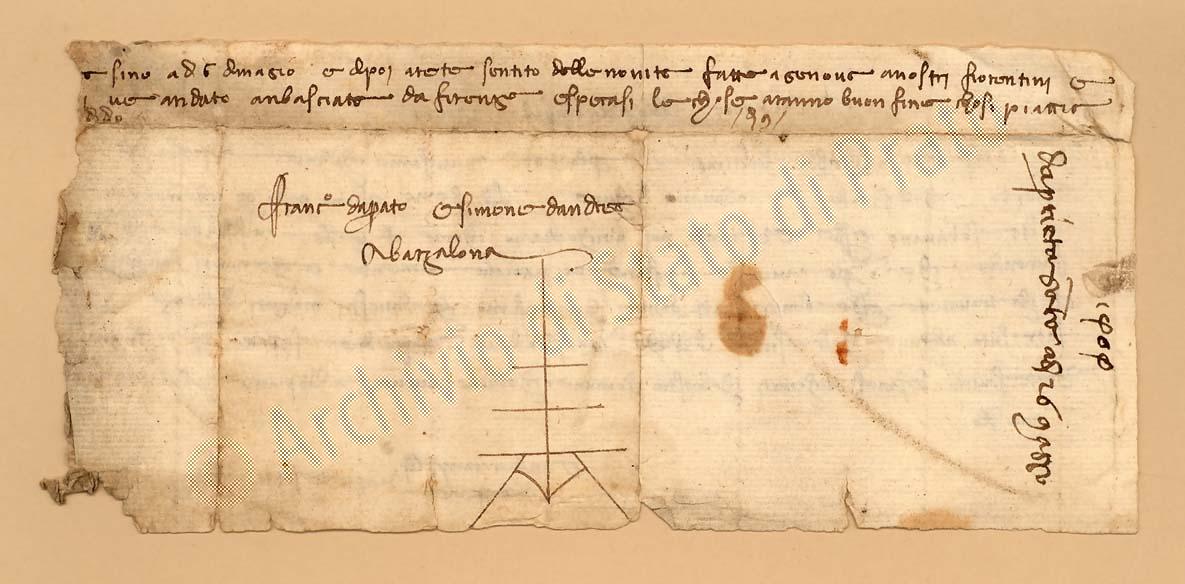 e sino a dì 6 di magio e dipoi avete sentito delle novite fatte a genova a nostri fiorentini e
v'è andato anbasciate da firenze e sperasi le chose aranno buon fine chosì piaccia
a ddo
Franc° da prato e simone d'andrea
in barzalona
da
a dì 26
1404
© Archivio di Stato di Prato